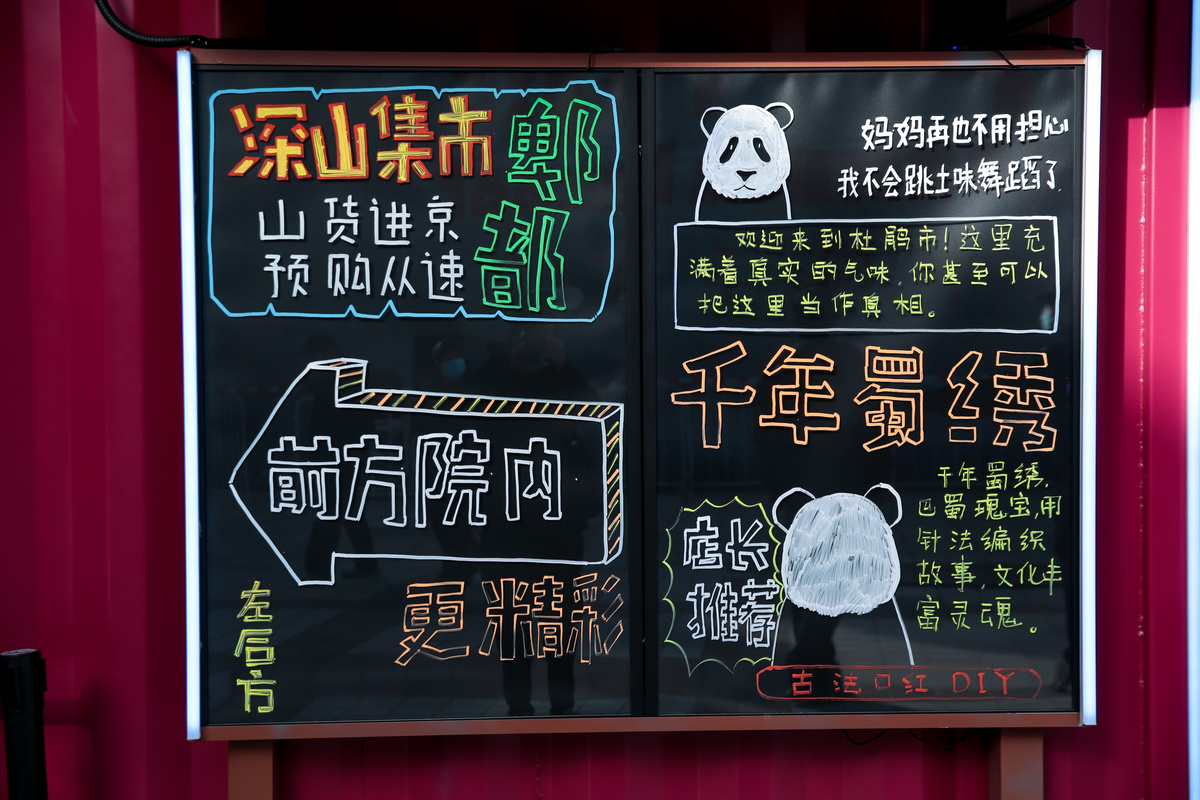 深山集市
郫都
山货进京
预购从速
前方院内
更精彩
左后方
妈妈再也不用担心
我不会跳土味舞蹈了
欢迎来到杜鹃市！这里充
满着真实的气味，你甚至可以
把这里当作真相。
千年蜀绣
千年蜀绣，
巴蜀瑰宝，用
针法编织
故事，文化丰
富灵魂。
店长
推荐
古法口红 DIY